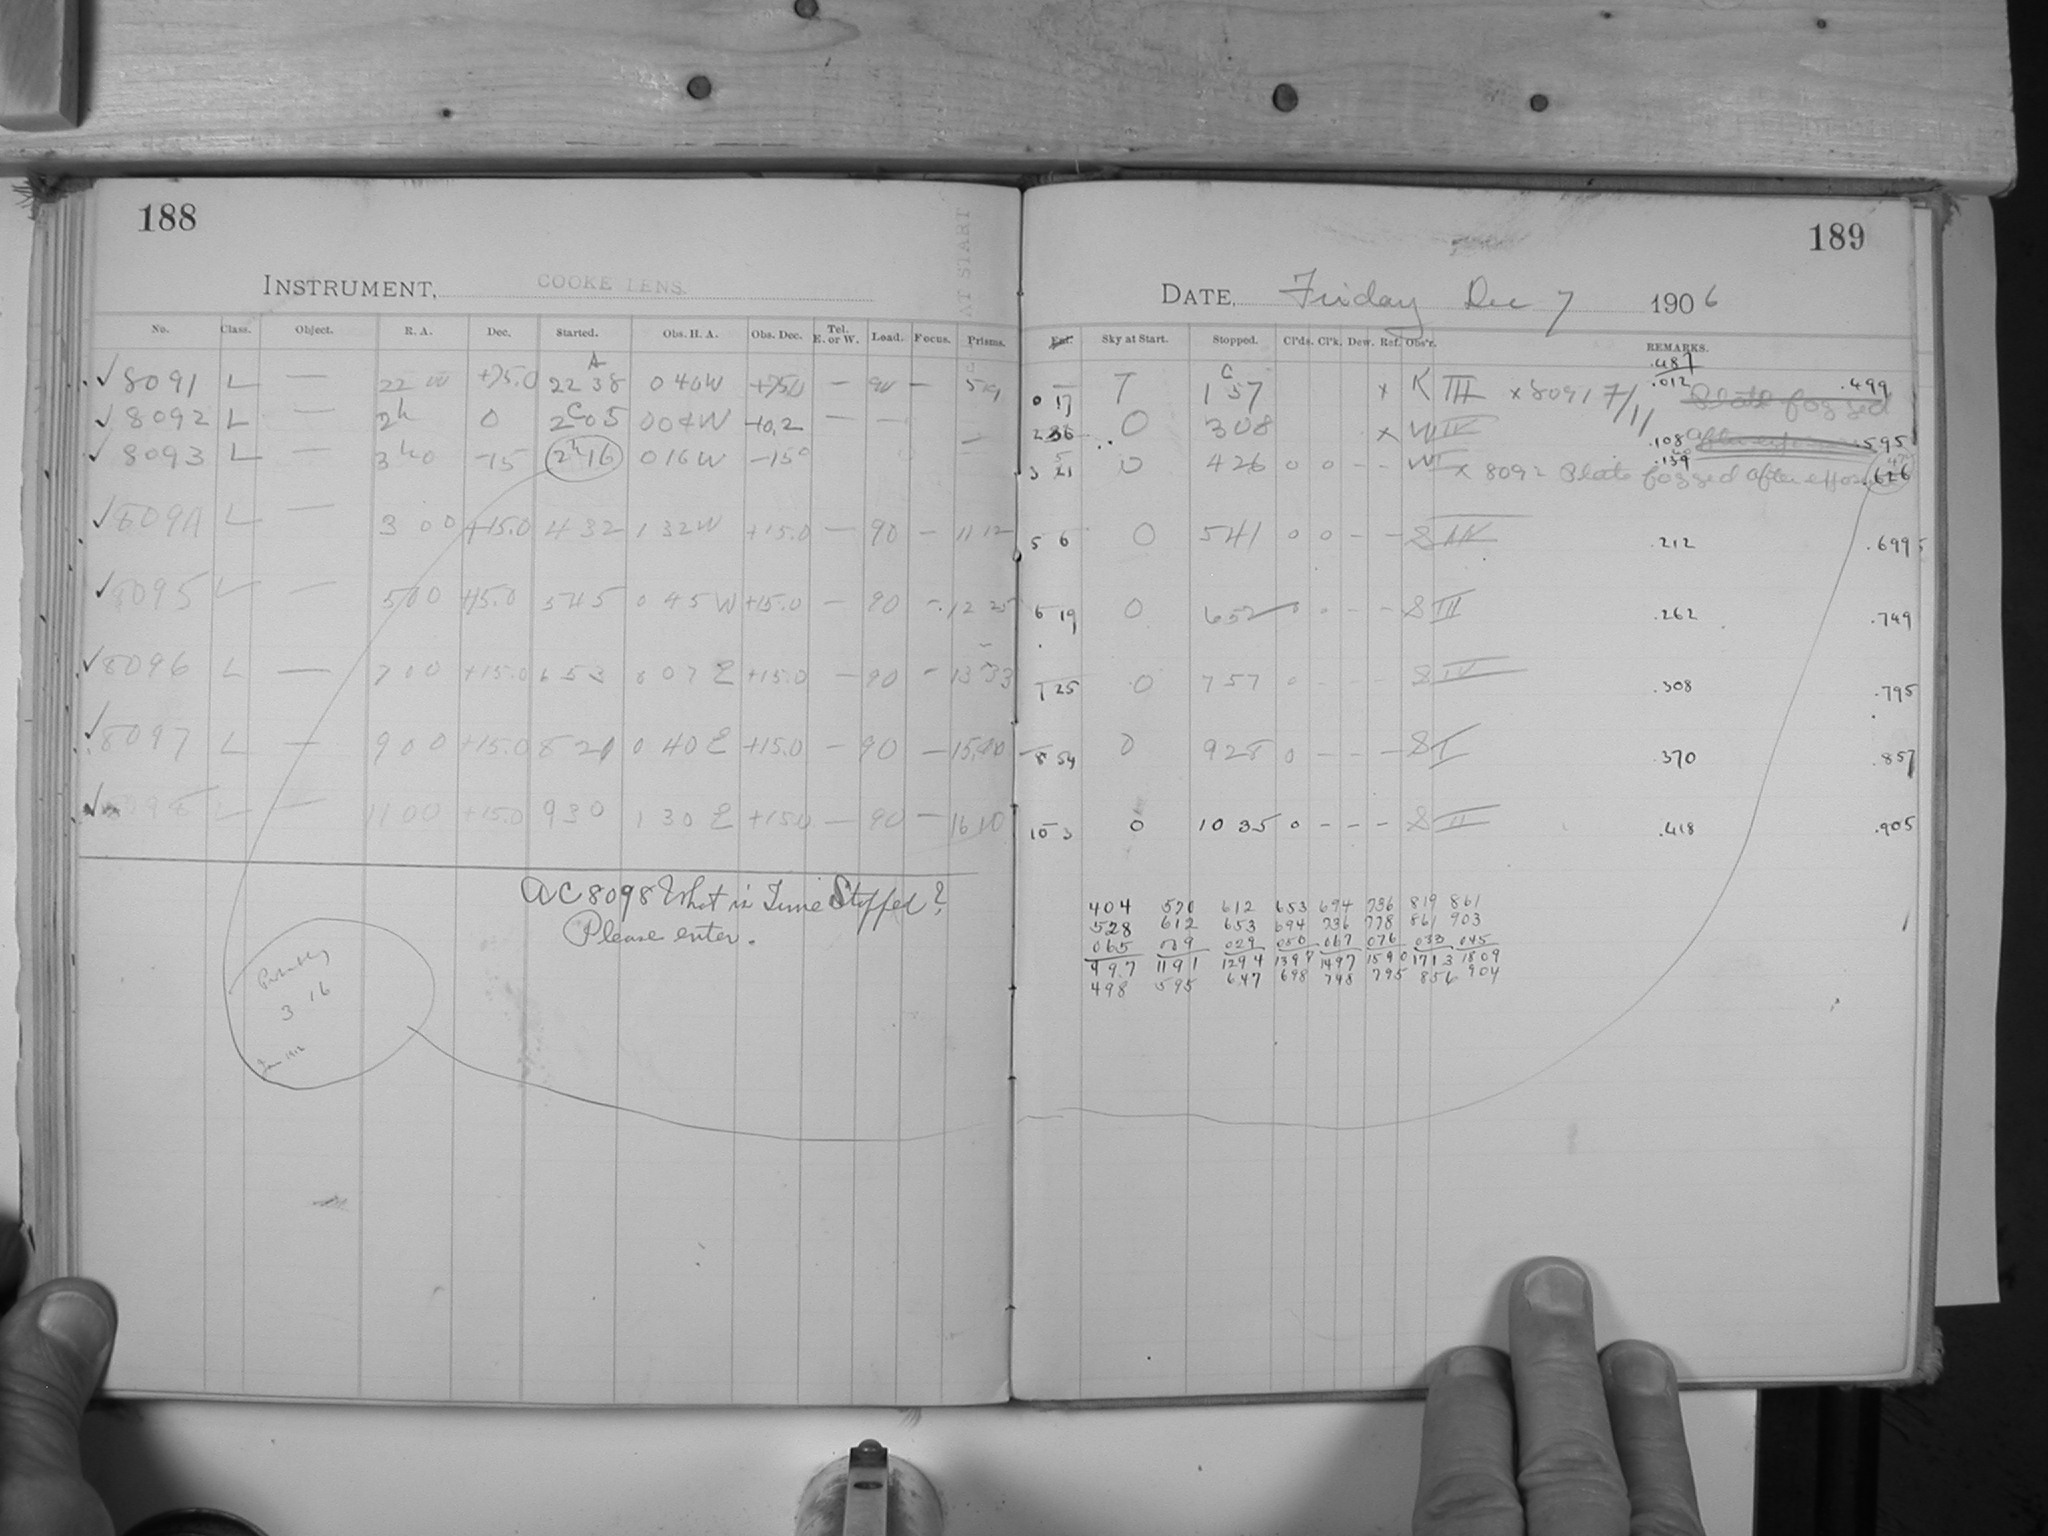 188
AT START
INSTRUMENT, COOKE LENS.
No. Class. Object. R. A. Dec. Started. Obs. H. A. Obs. Dec. Tel. E. or W. Load. Focus. Prisms.
A
✓ 8091 L — 22 +75.0 22 38 0 40W +75.0 — 90 —
✓ 8092 L — 2h 0 2 05 0 04W +0.2 — —
✓ 8093 L — 3h0 -15 2h16 0 16W -15°
✓ 8094 L — 3 00 +15.0 4 32 1 32W +15.0 — 90 — 11 12
✓ 8095 L — 5 00 +15.0 5 45 0 45W +15.0 — 90 — 12 25
✓ 8096 L — 7 00 +15.0 6 53 0 07 E +15.0 — 90 — 13 33
✓ 8097 L — 9 00 +15.0 8 20 0 40 E +15.0 — 90 — 15,00
✓ 8098 L — 11 00 +15.0 9 30 1 30 E +15.0 — 90 — 16 10
AC 8098 What is Time Stopped?
Please enter.
Probably
3 16
189
DATE, Friday Dec 7 1906
Ext. Sky at Start. Stopped. Cl'ds. Cl'k. Dew. Ref. Obs'r. REMARKS.
.487
0 17 T 1 57 x K III x 8091 7/11 .012 Plate fogged .499
2 36 0 3 08 x W IV .108 after exposure .595
3 21 0 4 26 0 0 - - W I x 8092 Plate fogged after .139 .626
5 6 0 5 41 0 0 - - S IV .212 .699
6 19 0 6 52 0 - - S III .262 .749
7 25 0 7 57 0 - - - S IV .308 .795
8 54 0 9 28 0 - - - S I .370 .857
10 3 0 10 35 0 - - - S II .418 .905
404 570 612 653 694 736 819 861
528 612 653 694 736 778 861 903
065 009 029 050 067 076 033 045
997 1191 1294 1397 1497 1590 1713 1809
498 595 647 698 748 795 856 904